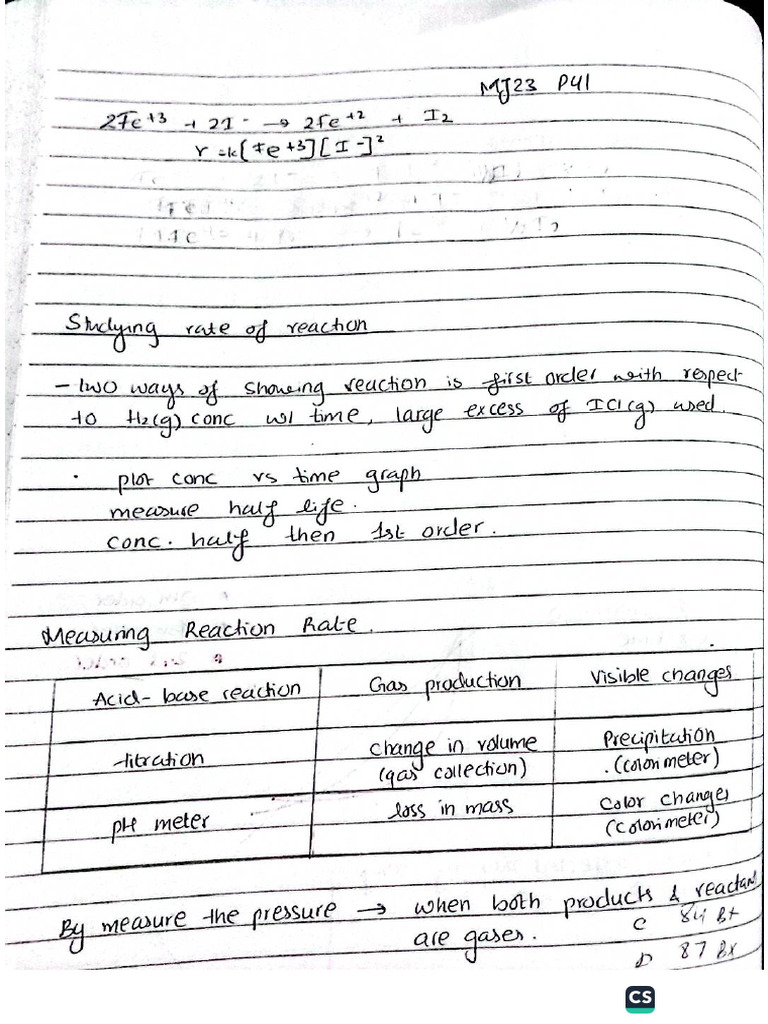 MJ23 P41
2Fe+3 + 2I- → 2Fe+2 + I2
r = k[Fe+3][I-]²
Studying rate of reaction
- two ways of showing reaction is first order with respect
to H2(g) conc w/ time, large excess of ICl(g) used.
· plot conc vs time graph
measure half life.
conc. half then 1st order.
Measuring Reaction Rate.
Acid-base reaction Gas production Visible changes
titration change in volume (gas collection) Precipitation (colorimeter)
pH meter loss in mass Color changes (colorimeter)
By measure the pressure → when both products & reactan
are gases.
C 84 B+
D 87 Bx
CS